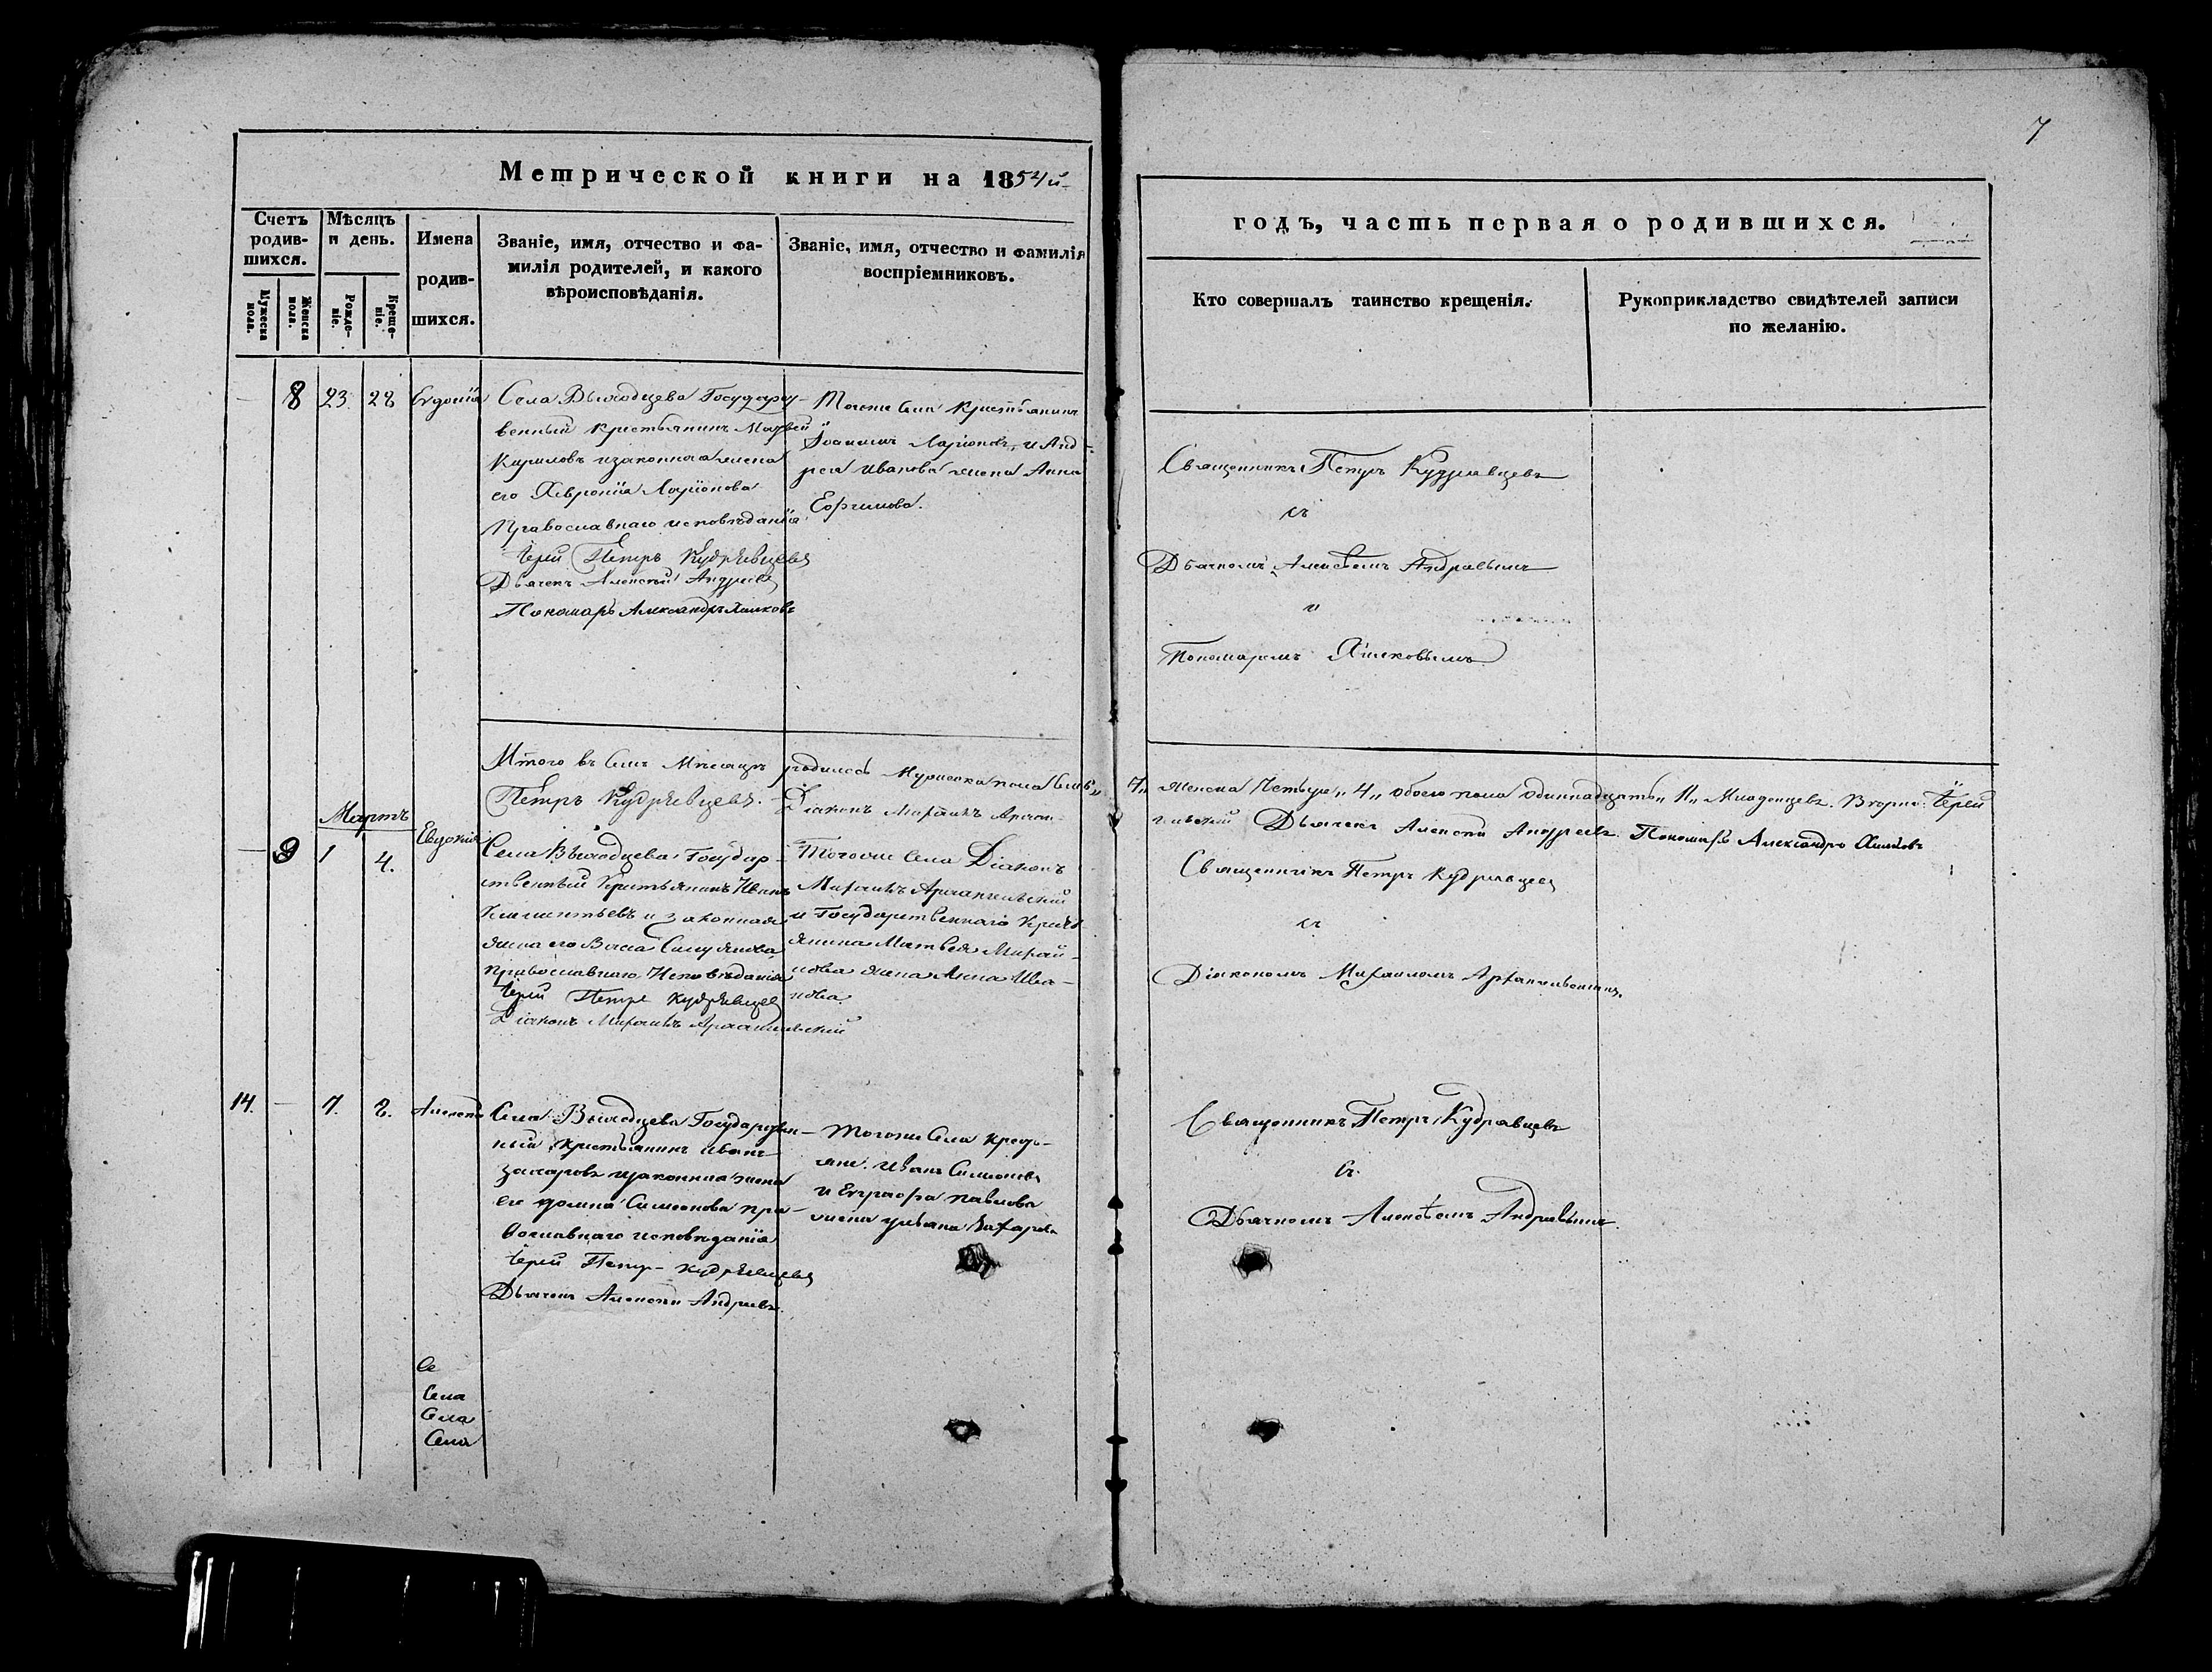 7
Метрической книги на 1854й
годъ, часть первая о родившихся.
Счетъ родив-шихся.
Мужеска пола.
Женска пола.
Мѣсяцъ и день.
Рожде-ніе.
Креще-ніе.
Имена родив-шихся.
Званіе, имя, отчество и фа-
милія родителей, и какого
вѣроисповѣданія.
Званіе, имя, отчество и фамилія
воспріемниковъ.
Кто совершалъ таинство крещенія.
Рукоприкладство свидѣтелей записи
по желанію.
8 23 28
Села Выходцева Государ
венный крестьянинъ Матвей
Кириловъ и законная жена
его Хевронiя Ларiонова
Православнаго исповѣданiя
Iерей Петръ Кудрявцевъ
Дьячекъ Алексѣй Андреевъ
Пономарь Александръ
Тогоже Села Крестьянинъ
Ларiоновъ и Анд-
рея Иванова жена Анна
Ефимова.
Священникъ Петръ Кудрявцевъ
съ
Дьячкомъ Алексѣемъ Андреевымъ
и
Пономаремъ
Итого въ семъ Мѣсяцѣ родилось Мужеска пола
7„ женска Четыре„ 4„ обоего пола одиннадцать„ 11„ Младенцевъ. Iерей
Петръ Кудрявцевъ. Дiаконъ Михаилъ Архан-
гельскiй Дьячекъ Алексѣй Андреевъ. Пономарь Александръ
Мартъ
9 1 4. Евдокия
Села Выходцева Государ-
ственный Крестьянинъ Иванъ
Климентьевъ и законная
жена его
православнаго Исповѣданiя
Iерей Петръ Кудрявцевъ
Дiаконъ Михаилъ Архангельскiй
Тогоже Села Дiаконъ
Михаилъ Архангельскiй
и Государственнаго Кресть
янина Матвея Михай-
лова жена Анна Ива-
нова.
Священникъ Петръ Кудрявцевъ
съ
Дiакономъ Михаиломъ Архангельскимъ.
14. 7. 8. Алексѣй
Села Выходцева Государствен-
ный Крестьянинъ Иванъ
Захаровъ и законная жена
его Домна Симеонова пра-
вославнаго исповѣданiя
Iерей Петръ Кудрявцевъ
Дьячекъ Алексѣй Андреевъ.
Тогоже Села Кресть-
яне. Иванъ Симеоновъ
и Евграфа Павлова
жена Ульяна Захарова
Священникъ Петръ Кудрявцевъ
съ
Дьячкомъ Алексѣемъ Андреевымъ.
Се
Села
Села
Села